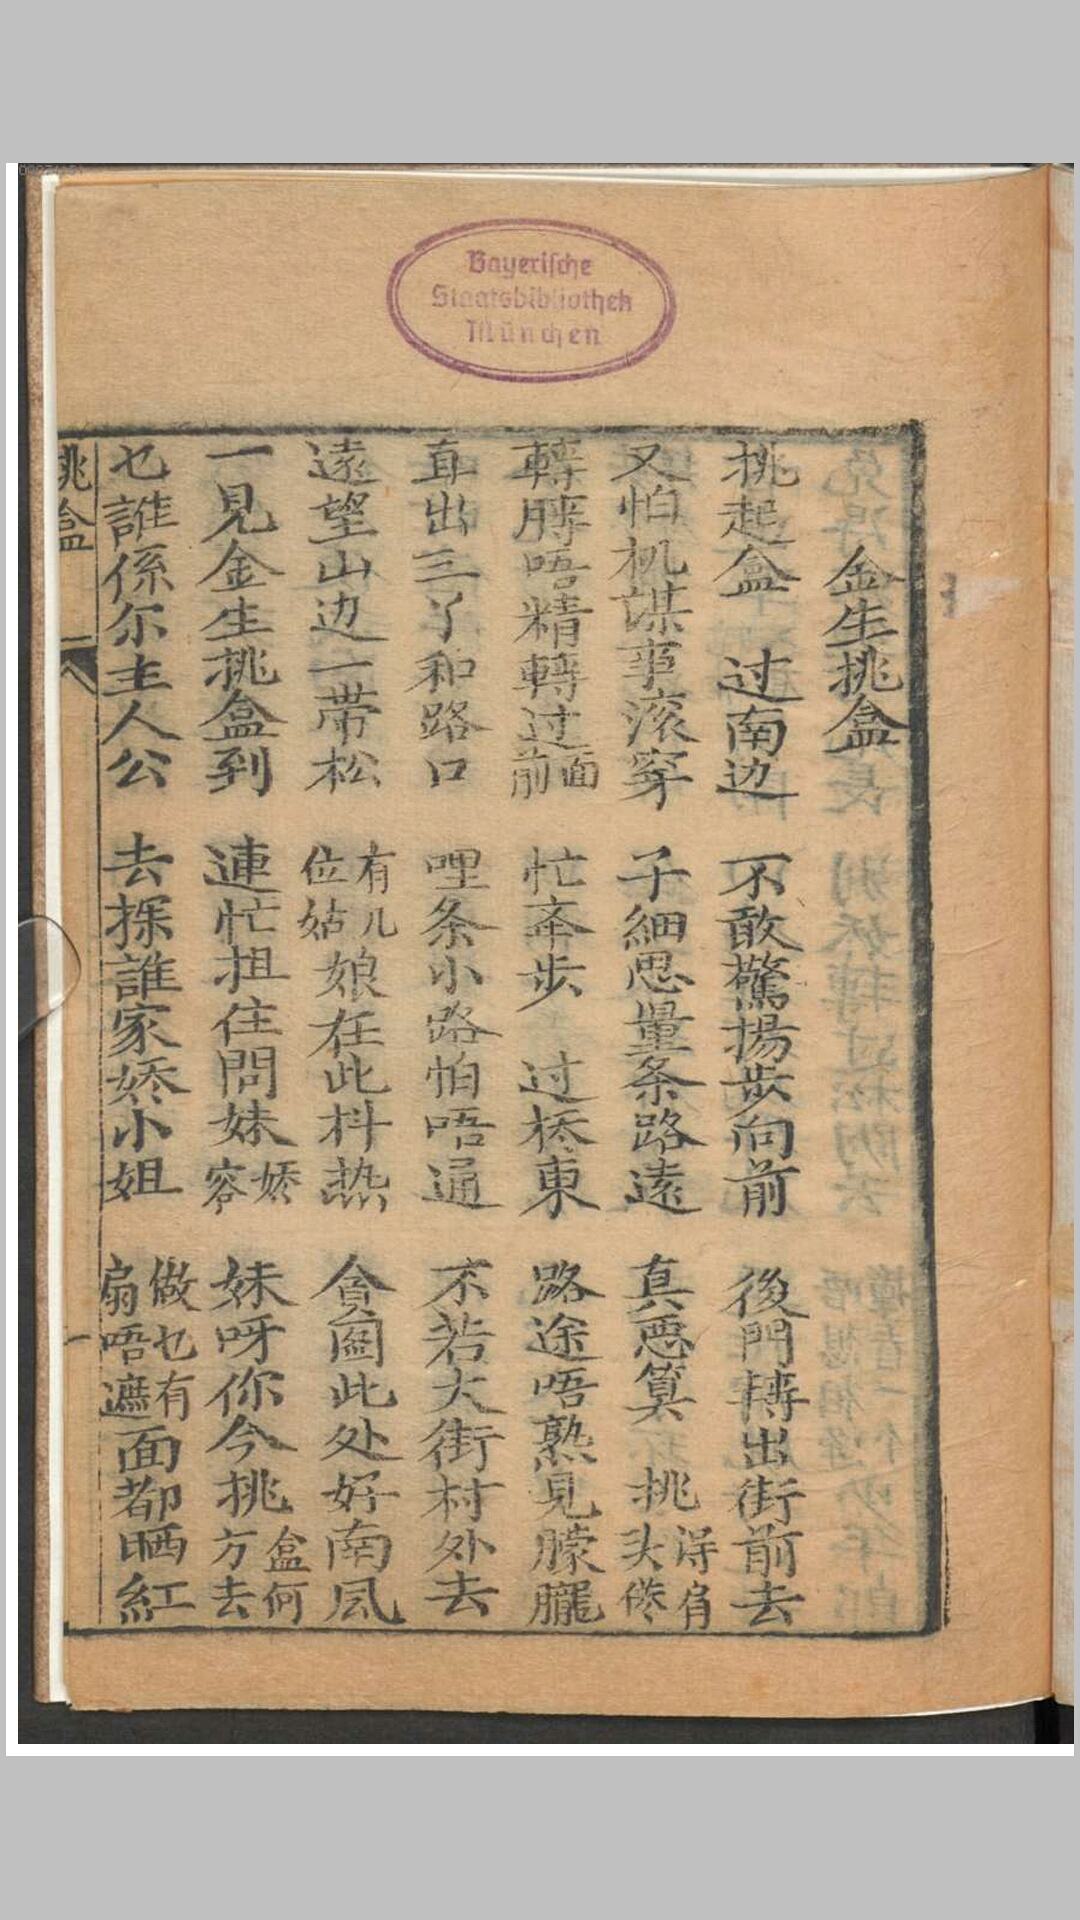 Bayerische
Staatsbibliothek
München
金生挑盒
挑起盒 过南边 不敢驚揚步向前 後門轉出街前去
又怕机謀事滚穿 子細思量条路遠 真悪算 挑得肩头
轉膊唔精轉过面前 忙奔步 过桥東 路途唔熟見朦朧
直出三丫和路口 哩条小路怕唔通 不若大街村外去
遠望山边一带松 有几位姑娘在此抖热 貪圖此处好南风
一見金生挑盒到 連忙扭住問妹娇容 妹呀你今挑盒何方去
乜誰係尔主人公 去探誰家娇小姐 做乜有扇唔遮面都晒紅
挑盒
一